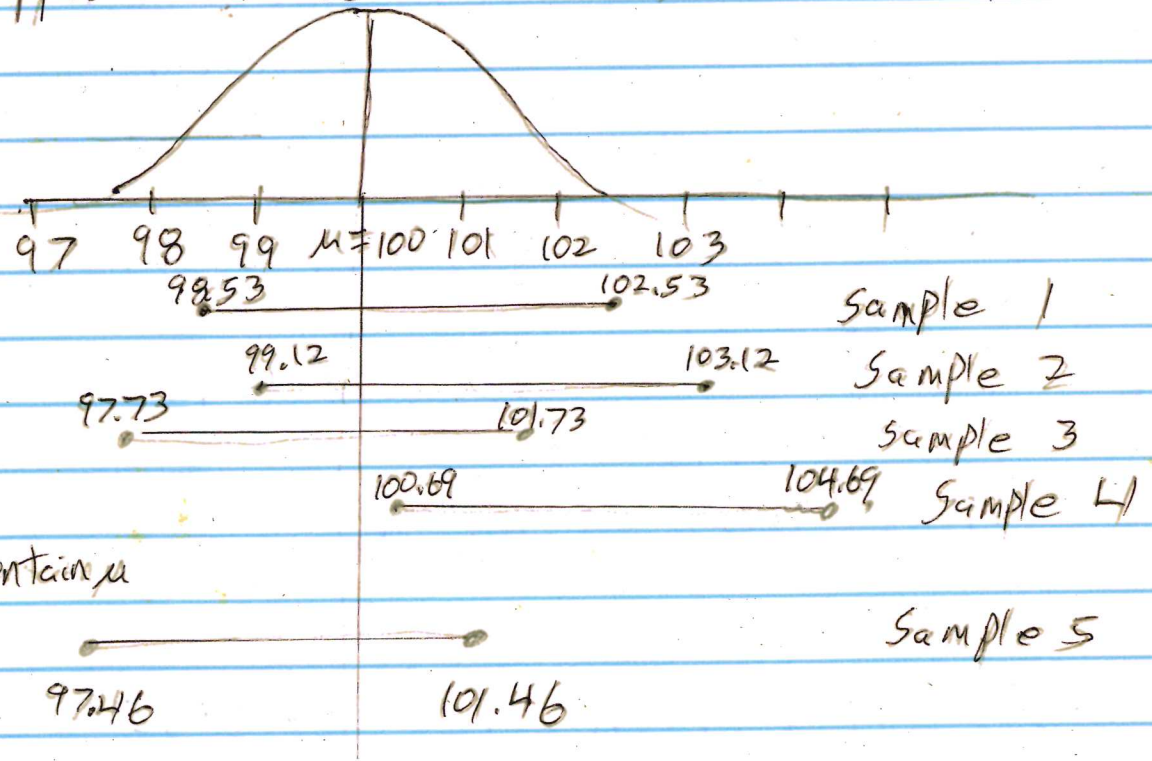 97 98 99 μ=100 101 102 103
98.53 102.53 Sample 1
99.12 103.12 Sample 2
97.73 101.73 Sample 3
100.69 104.69 Sample 4
ntain μ
Sample 5
97.46 101.46